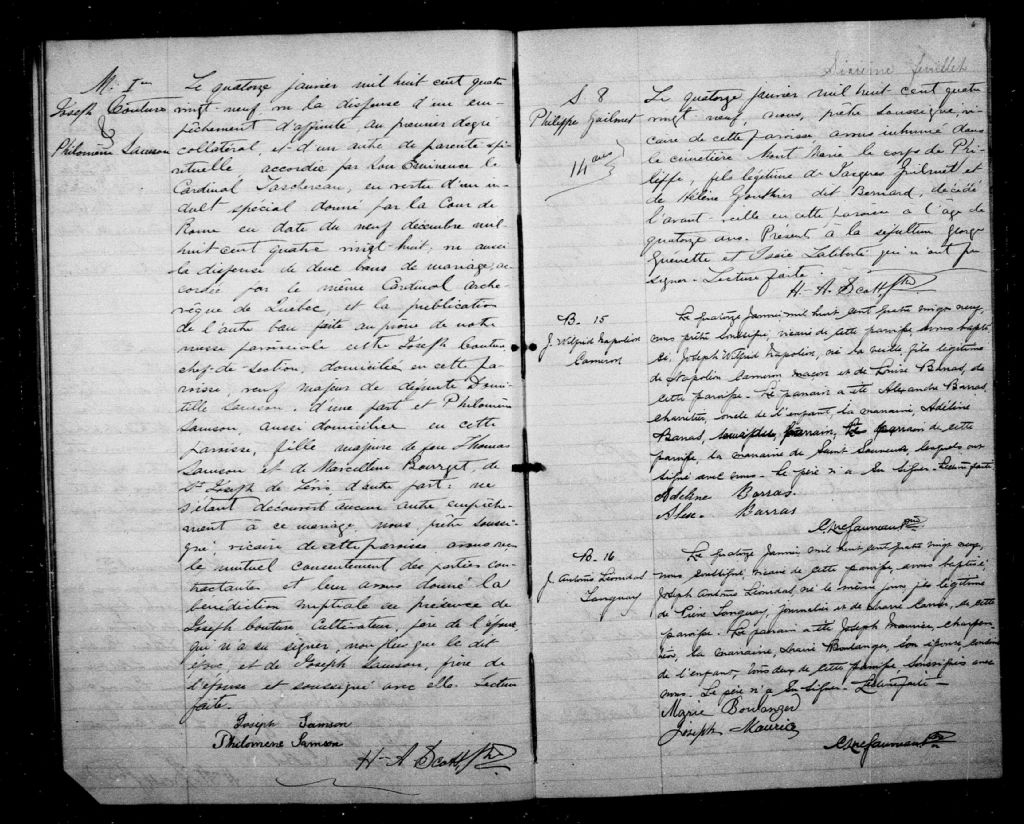 M. 1er
Joseph Couture
&
Philomène Samson
Le quatorze janvier mil huit cent quatre
vingt-neuf, vu la dispense d'un em-
pêchement d'affinité au premier degré
collatéral, et d'un autre de parenté spi-
rituelle, accordée par Son Eminence le
Cardinal Taschereau, en vertu d'un in-
dult spécial donné par la Cour de
Rome en date du neuf décembre mil
huit cent quatre vingt huit; vu aussi
la dispense de deux bans de mariage, ac-
cordée par le même Cardinal Arche-
vêque de Québec, et la publication
de l'autre ban faite au prone de notre
messe paroissiale entre Joseph Couture
chef-de-section, domicilié en cette pa-
roisse, veuf majeur de défunte Domi-
tille Samson, d'une part et Philomène
Samson, aussi domiciliée en cette
paroisse, fille majeure de feu Thomas
Samson et de Marcelline Bourget, de
St Joseph de Lévis, d'autre part: ne
s'étant découvert aucun autre empêche-
ment à ce mariage, nous, prêtre soussi-
gné, vicaire de cette paroisse, avons reçu
le mutuel consentement des parties con-
tractantes et leur avons donné la
bénédiction nuptiale en présence de
Joseph Couture Cultivateur, père de l'époux
qui n'a su signer, non plus que le dit
époux, et de Joseph Samson, frère de
l'épouse et soussigné avec elle. Lecture
faite.
Joseph Samson
Philomene Samson
H-A Scott, Ptre
Sixième feuillet
S. 8
Philippe Guilmet
14 ans
Le quatorze janvier mil huit cent quatre
vingt neuf, nous, prêtre soussigné, vi-
caire de cette paroisse avons inhumé dans
le cimetière Mont Marie le corps de Phi-
lippe, fils légitime de Jacques Guilmet et
de Hélène Gauthier dit Bernard, décédé
l'avant-veille en cette paroisse à l'âge de
quatorze ans. Présent à la sépulture George
Guenette et Laliberté qui n'ont pu
signer. Lecture faite.
H-A Scott, Ptre
B. 15
J. Wilfrid Napoléon
Cameron
Le quatorze Janvier mil huit cent quatre vingt neuf,
nous prêtre soussigné, vicaire de cette paroisse avons bapti-
sé, Joseph Wilfrid Napoléon, né la veille fils légitime
de Napoléon Cameron maçon et de Louise Barras, de
cette paroisse. Le parrain a été Alexandre Barras,
charretier, oncle de l'enfant, la marraine, Adéline
Barras, parrain, de cette
paroisse, la marraine de Saint Sauveur, lesquels ont
signé avec nous. Le père n'a su signer. Lecture faite
Adeline Barras
Alex. Barras
B. 16
J. Antoine Léonidas
Tanguay
Le quatorze Janvier mil huit cent quatre vingt neuf,
nous soussigné, vicaire de cette paroisse, avons baptisé,
Joseph Antoine Léonidas, né le même jour, fils légitime
de Pierre Tanguay, journalier et de de cette
paroisse. Le parrain a été Joseph Maurice, charpen-
tier, la marraine, Marie Boulanger, son épouse,
de l'enfant, tous deux de cette paroisse soussignés avec
nous. Le père n'a su signer. Lecture faite
Marie Boulanger
Joseph Maurice